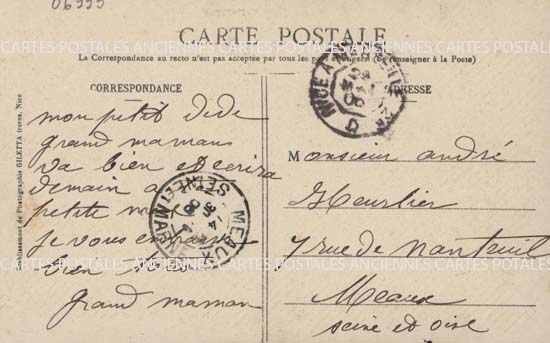 06999
CARTE POSTALE
CARTES POSTALES ANCIENNES CARTES POSTALES ANCIENNES CARTES POSTALES
La Correspondance au recto n'est pas acceptée par tous les pays étrangers (Se renseigner à la Poste)
CORRESPONDANCE
mon petit Dédé
grand maman
va bien et écrira
demain a
petite
je vous embrasse
bien
grand maman
Etablissement de Photographie GILETTA frères, Nice
NICE A MARSEILLE
MEAUX
SEINE ET MARNE
ADRESSE
Monsieur andré
Heurlier
7 rue de nanteuil
Meaux
seine et oise